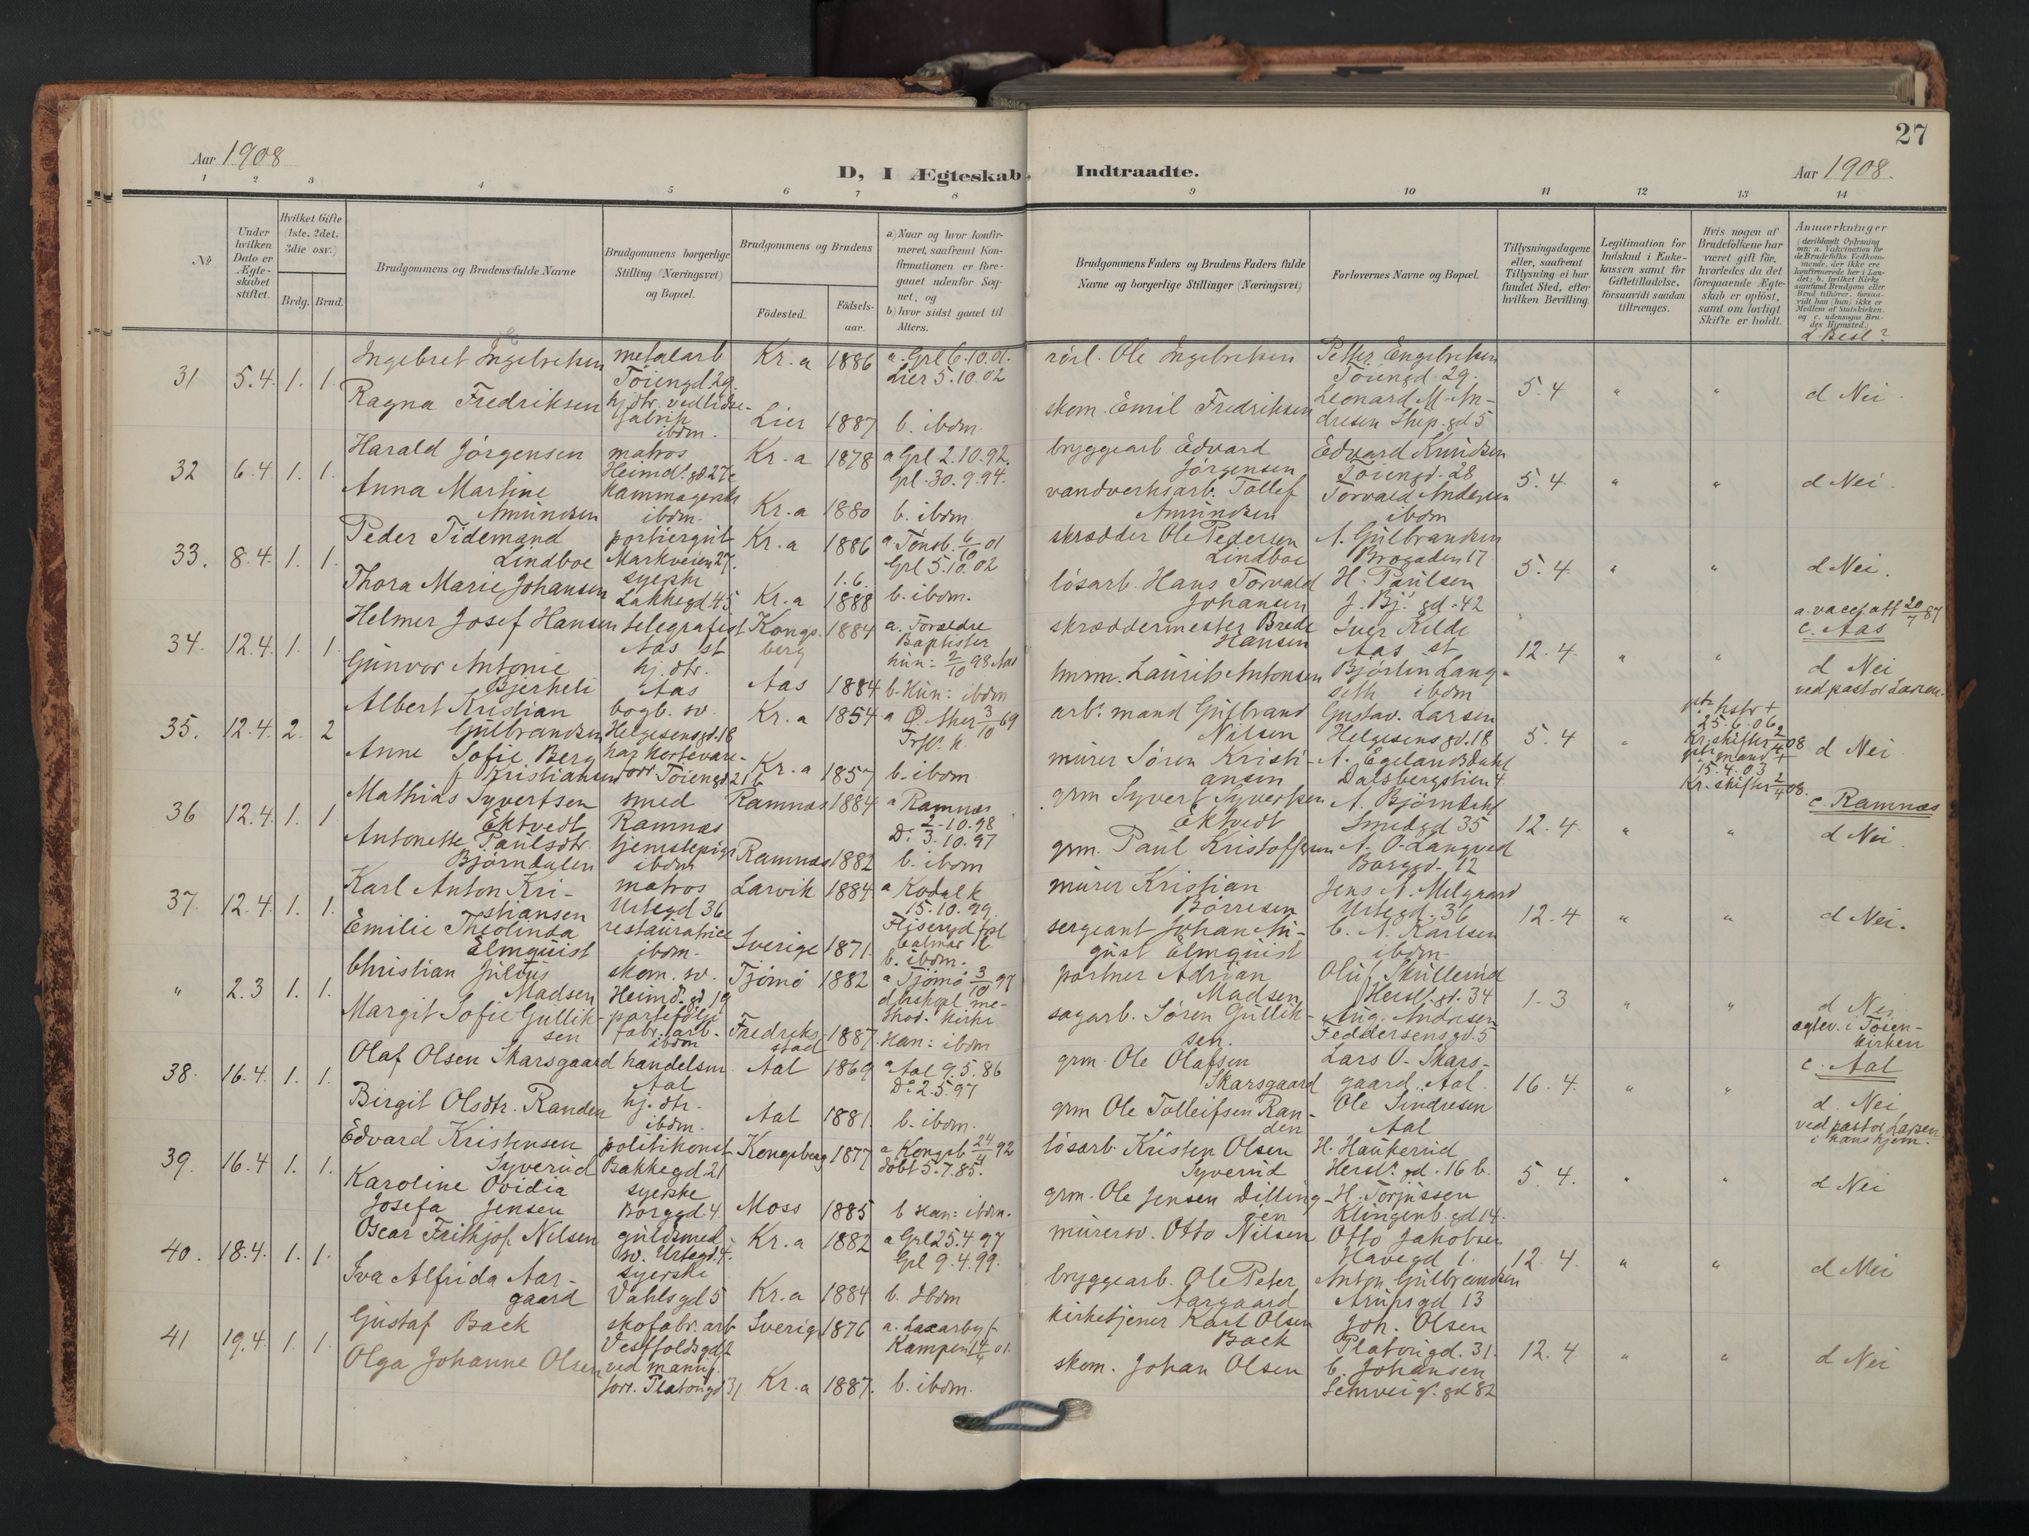 Aar 1908
D, I Ægteskab. Indtraadte.
27
Aar 1908.
1 2 3 4 5 6 7 8 9 10 11 12 13 14
№
Under hvilken Dato er Ægteskabet stiftet.
Hvilket Gifte (1ste, 2det, 3die osv.)
Brdg. Brud.
Brudgommens og Brudens fulde Navne
Brudgommens borgerlige Stilling (Næringsvei) og Bopæl.
Brudgommens og Brudens
Fødested.
Fødselsaar.
a) Naar og hvor konfirmeret, saafremt Konfirmationen er foregaaet udenfor Sognet, og
b) hvor sidst gaaet til Alters.
Brudgommens Faders og Brudens Faders fulde Navne og borgerlige Stillinger (Næringsvei)
Forlovernes Navne og Bopæl.
Tillysningsdagene eller, saafremt Tillysning ei har fundet Sted, efter hvilken Bevilling.
Legitimation for Indskud i Enkekassen samt for Giftetilladelse, forsaavidt saadan tiltrænges.
Hvis nogen af Brudefolkene har været gift før, hvorledes da det foregaaende Ægteskab er opløst, samt om lovligt Skifte er holdt.
Anmærkninger
d Besl?
31 5.4 1. 1. Ingebret Ingebretsen metalarb Kr.a 1886 a. Grl 6.10.01. rørl. Ole Ingebretsen Petter Engebretsen 5.4 " " d Nei.
Tøiengd. 29. Lier 5.10.02 Tøiengd. 29.
Ragna Fredriksen hj.dtr. vedlidsefabrik ibdm. Lier 1887 b. ibdm. skom. Emil Fredriksen Leonard M. Andresen Ship.gd 5
32 6.4 1. 1. Harald Jørgensen matros Kr.a 1878 a Grl 2.10.92. bryggearb Edvard Jørgensen Edvard Knudsen 5.4 " " d Nei.
Heimdl.gd. 27c Grl. 30.9.94. Tøiengd. 28
Anna Martine Amundsen ibdm. Kr.a 1880 b. ibdm vandverksarb. Tollef Amundsen Torvald Andersen ibdm
33. 8.4 1. 1. Peder Tidemand Lindboe portiergut Kr.a 1886 a Tønsb. 6/10 01 skrædder Ole Pedersen Lindboe A. Gulbrandsen 5.4 " " d Nei.
Markveien 27. Grl 5.10.02 Brogaden 17
Thora Marie Johansen syerske Lakkegd 45 Kr.a 1.6. 1888 b. ibdm. løsarb. Hans Torvald Johansen H. Paulsen J. Bj. gd. 42
34. 12.4 1. 1. Helmer Josef Hansen telegrafist Kongsberg 1884 a. Forældre Baptister skræddermester Brede Hansen Iver Kilde 12.4 " " a. vacc. att 20/7 87
Aas st hun: 2/10 98 Aas Aas st c. Aas
Gunvor Antonie Bjerkeli hj. dtr. Aas Aas 1884 b. Hun: ibdm Laurits Antonsen Bjørlin Langseth ibdm d Nei
ved pastor Larsen.
35. 12.4. 2. 2 Albert Kristian Gulbrandsen bogb. sv. Kr.a 1854 a Ø. Aker 3/10 69 arb. mand Gulbrand Nilsen Gustav. Larsen 5.4 " d Nei
Helgesensgd. 18 Trfg. k. Helgesensgd. 18 25.6.06 Kr. skifter 2/4 08
Anne Sofie Berg f Kristiansen Tøiengd 21 b Kr.a 1857 b. ibdm murer Søren Kristiansen A. Egelandsdahl Dalsbergstien 4 15.4.03 Kr. skifter 2/4 08.
36 12.4. 1. 1. Mathias Syvertsen Ektvedt smed Ramnæs Ramnæs 1884 a Ramnæs 2.10.98 grm Syvert Syvertsen Ektvedt A. Bjørndahl Smedgd 35 12.4 " " c. Ramnæs
Antonette Paulsdtr. Bjørndalen tjenstepige ibdm Ramnæs 1882 Do 3.10.97 b. ibdm grm. Paul Kristoffersen A. O. Langved Borggd. 12 d Nei
37. 12.4. 1. 1. Karl Anton Kristiansen matros Urtegd 36 Larvik 1884 a Kodal k 15.10.99. murer Kristian Børresen Jens A. Melgaard Urtegd. 36 12.4 " " d Nei.
Emilie Theolinda Elmquist restauratrice ibdm. Sverige 1871. b. ibdm. sergeant Johan August Elmquist C. A. Karlsen ibdm.
" 2.3 1. 1. Christian Julius Madsen skom. sv. Heimd.gd 19 Tjømø 1882 a Tjømø 3/10 97 portner Adrian Madsen Oluf Skullerud Hersl. gt. 34 1.3 " " d Nei
Margit Sofie Gulliksen portefølje fabr. arb. ibdm Fredriksstad 1887 Han: ibdm sagarb. Søren Gulliksen. Aug. Andresen Feddersensgd. 5 egtev. i Tøsenkirken
38. 16.4. 1. 1. Olaf Olsen Skarsgaard handelsm Aal Aal 1869 a Aal 9.5.86 grm. Ole Olafsen Skarsgaard Lars O. Skarsgaard, Aal. 16.4. " " c. Aal
Birgit Olsdtr. Randen hj. dtr. ibdm. Aal 1881. Do 2.5.97 b. ibdm. grm Ole Tolleifsen Randen Ole Sindresen Aal d. Nei
ved pastor Larsen i hans hjem.
39. 16.4 1. 1. Edvard Kristensen Syverud politikonst Bakkegd 21 Kongsberg 1877 a Kongsb 24/4 92 døbt 5.7.85. løsarb. Kristen Olsen Syverud H. Haukerud Hersl. gd. 16 b. 5.4. " " d Nei
Karoline Ovidia Josefa Jensen syerske Borggd 4. Moss 1885 b Han: ibdm. grm. Ole Jensen Dillingøen H. Torjussen Klingenb.gd 14.
40. 18.4. 1. 1. Oscar Frithjof Nilsen guldsmed sv. Urtegd. 4. Kr.a 1882 a Grl 25.4.97 Grl 9.4.99. murersv. Otto Nilsen Otto Jakobsen Havegd 1. 12.4. " " d Nei
Iva Alfrida Aargaard syerske Vahlsgd 5 Kr.a 1884 b. ibdm bryggearb. Ole Peter Aargaard Anton Gulbrandsen Arupsgd 13
41 19.4. 1. 1. Gustaf Back skofabr. arb Vestfoldsgd 2 Sverige 1876 a. Laxarby f Kampen 14/4 01. kirketjener Karl Olsen Back Joh. Olsen Platougd. 31. 12.4 " " d Nei
Olga Johanne Olsen ved manuf. forr. Platougd 31 Kr.a 1887. b. ibdm. skom. Johan Olsen C. Johansen Schweig. gd 82